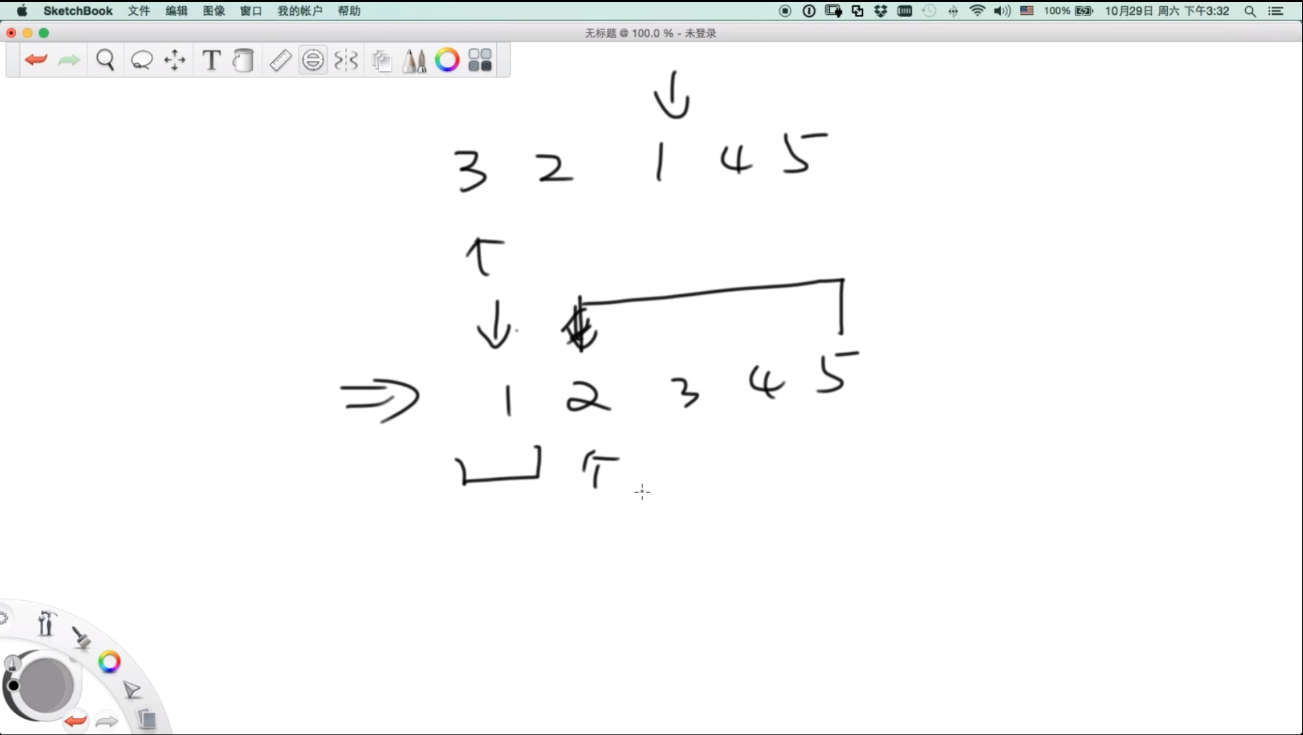 SketchBook 文件 编辑 图像 窗口 我的帐户 帮助 100% 10月29日 周六 下午3:32
无标题 @ 100.0 % - 未登录
T
3 2 1 4 5
1 2 3 4 5